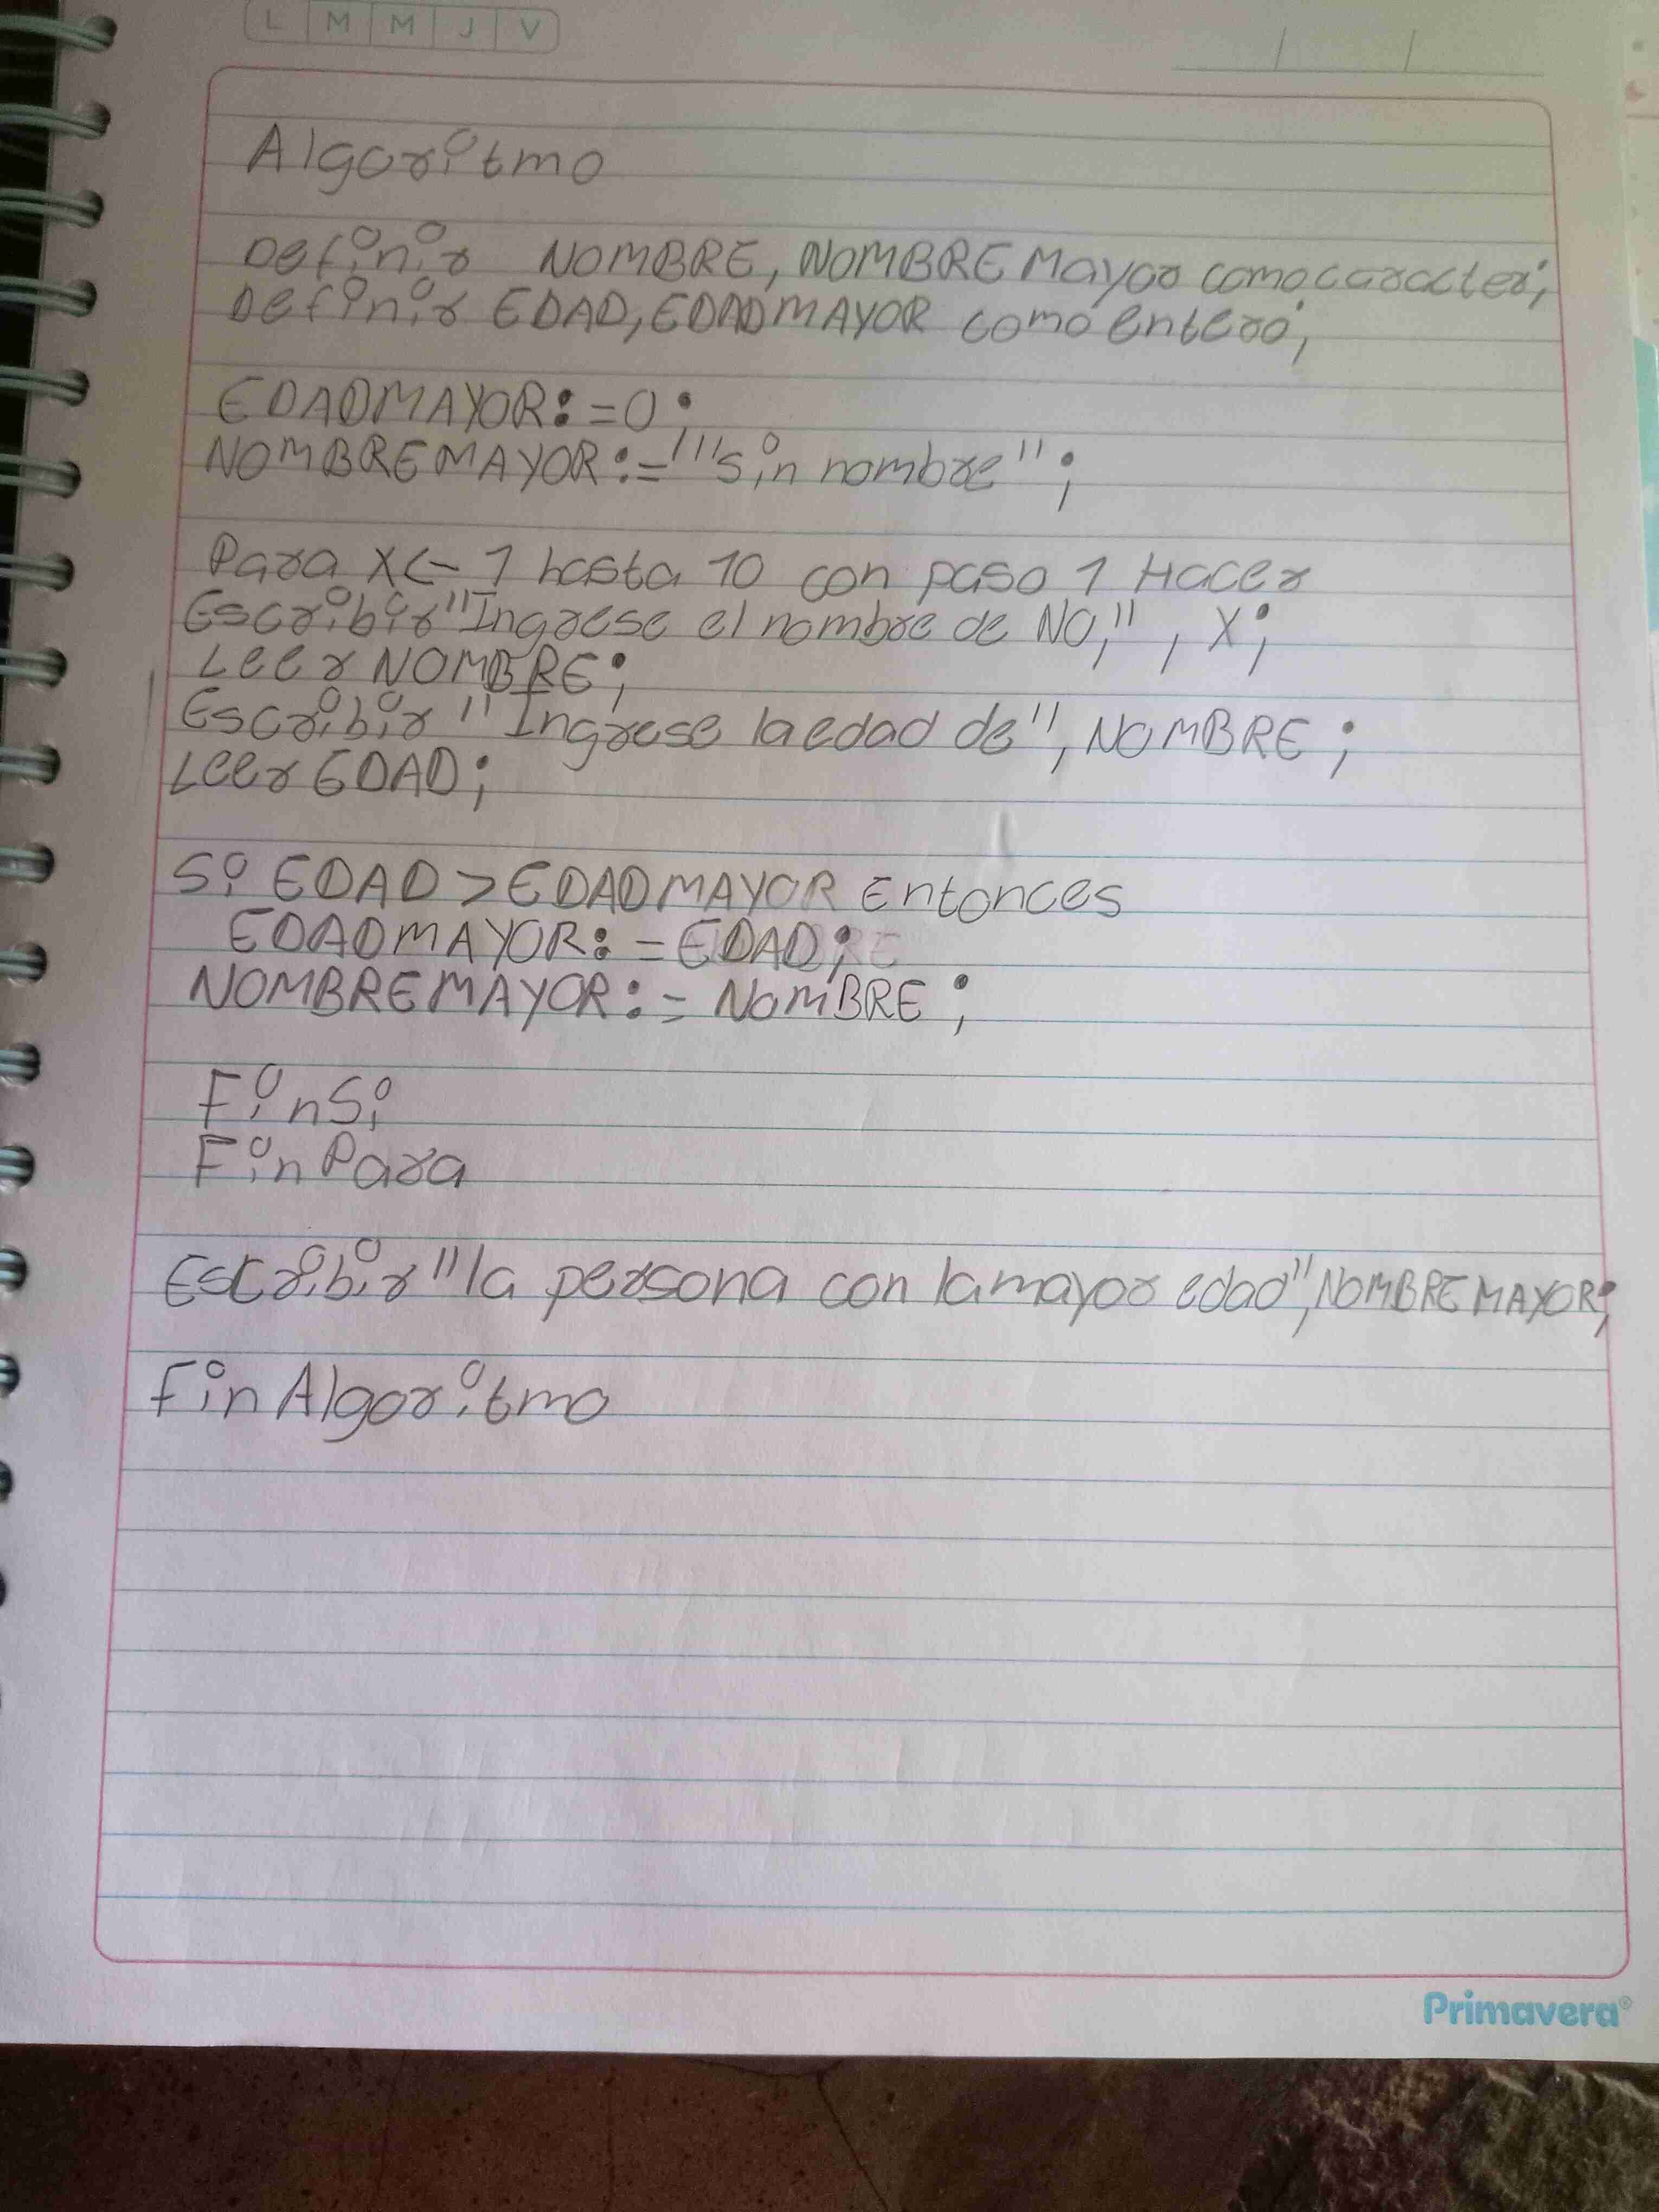 L M M J V
Algoritmo
Definir NOMBRE, NOMBRE Mayor como caracter;
Definir EDAD, EDADMAYOR como entero;
EDADMAYOR:=0;
NOMBREMAYOR:=""sin nombre";
Para X<-1 hasta 10 con paso 1 Hacer
Escribir "Ingrese el nombre de NO,", X;
Leer NOMBRE;
Escribir "Ingrese la edad de", NOMBRE;
Leer EDAD;
Si EDAD > EDADMAYOR Entonces
EDADMAYOR:=EDAD;
NOMBREMAYOR:= NOMBRE;
FinSi
FinPara
Escribir "la persona con la mayor edad", NOMBREMAYOR;
Fin Algoritmo
Primavera®